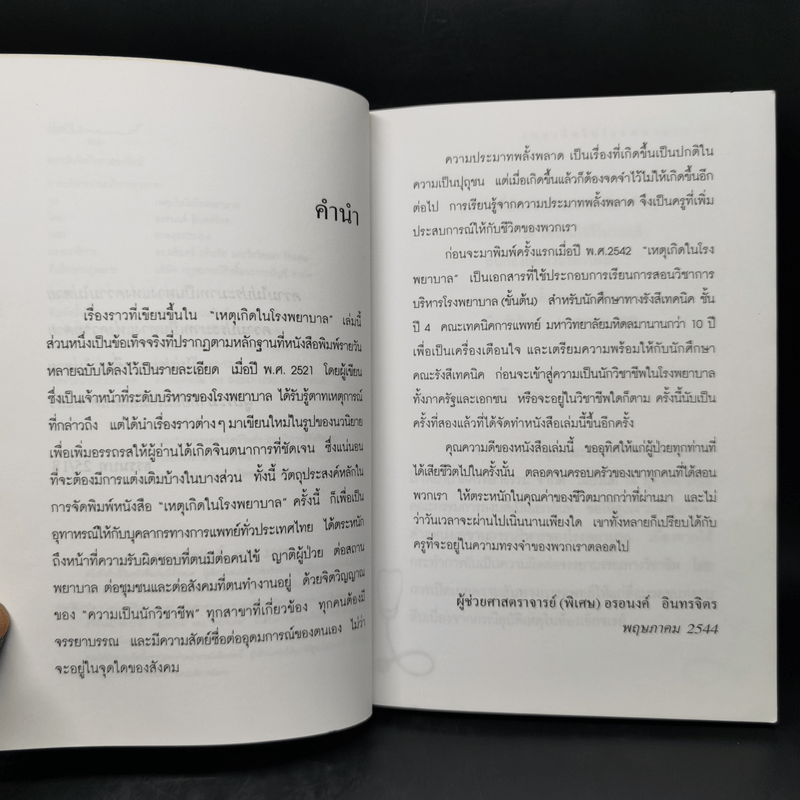 คำนำ
เรื่องราวที่เขียนขึ้นใน "เหตุเกิดในโรงพยาบาล" เล่มนี้
ส่วนหนึ่งเป็นข้อเท็จจริงที่ปรากฏตามหลักฐานที่หนังสือพิมพ์รายวัน
หลายฉบับได้ลงไว้เป็นรายละเอียด เมื่อปี พ.ศ. 2521 โดยผู้เขียน
ซึ่งเป็นเจ้าหน้าที่ระดับบริหารของโรงพยาบาล ได้รับรู้ตาทเหตุการณ์
ที่กล่าวถึง แต่ได้นำเรื่องราวต่างๆ มาเขียนใหม่ในรูปของนวนิยาย
เพื่อเพิ่มอรรถรสให้ผู้อ่านได้เกิดจินตนาการที่ชัดเจน ซึ่งแน่นอน
ที่จะต้องมีการแต่งเติมบ้างในบางส่วน ทั้งนี้ วัตถุประสงค์หลักใน
การจัดพิมพ์หนังสือ "เหตุเกิดในโรงพยาบาล" ครั้งนี้ ก็เพื่อเป็น
อุทาหรณ์ให้กับบุคลากรทางการแพทย์ทั่วประเทศไทย ได้ตระหนัก
ถึงหน้าที่ความรับผิดชอบที่ตนมีต่อคนไข้ ญาติผู้ป่วย ต่อสถาน
พยาบาล ต่อชุมชนและต่อสังคมที่ตนทำงานอยู่ ด้วยจิตวิญญาณ
ของ "ความเป็นนักวิชาชีพ" ทุกสาขาที่เกี่ยวข้อง ทุกคนต้องมี
จรรยาบรรณ และมีความสัตย์ซื่อต่ออุดมการณ์ของตนเอง ไม่ว่า
จะอยู่ในจุดใดของสังคม
ความประมาทพลั้งพลาด เป็นเรื่องที่เกิดขึ้นเป็นปกติใน
ความเป็นปุถุชน แต่เมื่อเกิดขึ้นแล้วก็ต้องจดจำไว้ไม่ให้เกิดขึ้นอีก
ต่อไป การเรียนรู้จากความประมาทพลั้งพลาด จึงเป็นครูที่เพิ่ม
ประสบการณ์ให้กับชีวิตของพวกเรา
ก่อนจะมาพิมพ์ครั้งแรกเมื่อปี พ.ศ.2542 "เหตุเกิดในโรง
พยาบาล" เป็นเอกสารที่ใช้ประกอบการเรียนการสอนวิชาการ
บริหารโรงพยาบาล (ขั้นต้น) สำหรับนักศึกษาทางรังสีเทคนิค ชั้น
ปี 4 คณะเทคนิคการแพทย์ มหาวิทยาลัยมหิดลมานานกว่า 10 ปี
เพื่อเป็นเครื่องเตือนใจ และเตรียมความพร้อมให้กับนักศึกษา
คณะรังสีเทคนิค ก่อนจะเข้าสู่ความเป็นนักวิชาชีพในโรงพยาบาล
ทั้งภาครัฐและเอกชน หรือจะอยู่ในวิชาชีพใดก็ตาม ครั้งนี้นับเป็น
ครั้งที่สองแล้วที่ได้จัดทำหนังสือเล่มนี้ขึ้นอีกครั้ง
คุณความดีของหนังสือเล่มนี้ ขออุทิศให้แก่ผู้ป่วยทุกท่านที่
ได้เสียชีวิตไปในครั้งนั้น ตลอดจนครอบครัวของเขาทุกคนที่ได้สอน
พวกเรา ให้ตระหนักในคุณค่าของชีวิตมากกว่าที่ผ่านมา และไม่
ว่าวันเวลาจะผ่านไปเนิ่นนานเพียงใด เขาทั้งหลายก็เปรียบได้กับ
ครูที่จะอยู่ในความทรงจำของพวกเราตลอดไป
ผู้ช่วยศาสตราจารย์ (พิเศษ) อรอนงค์ อินทรจิตร
พฤษภาคม 2544